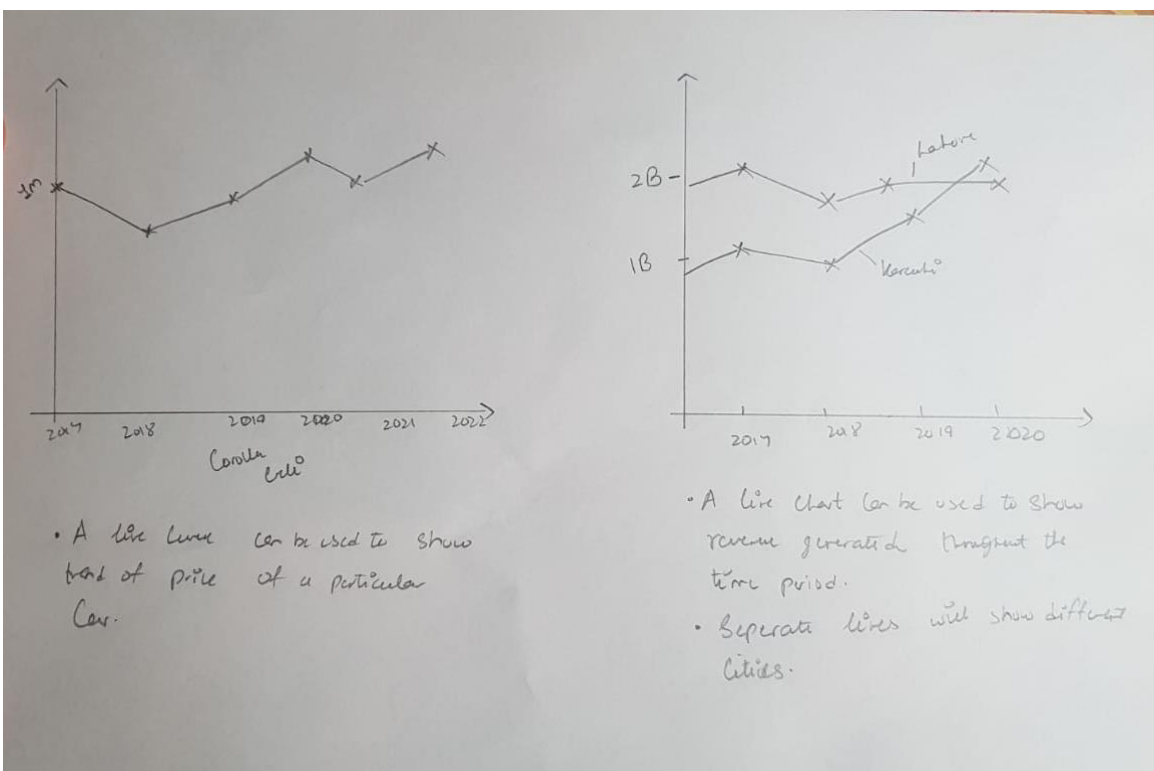 1m
2017 2018 2019 2020 2021 2022
Corolla
• A line curve can be used to show
trend of price of a particular
Car.
2B
1B
Lahore
Karachi
2017 2018 2019 22020
• A line chart can be used to show
revenue generated throughout the
time period.
• Seperate lines will show different
Cities.